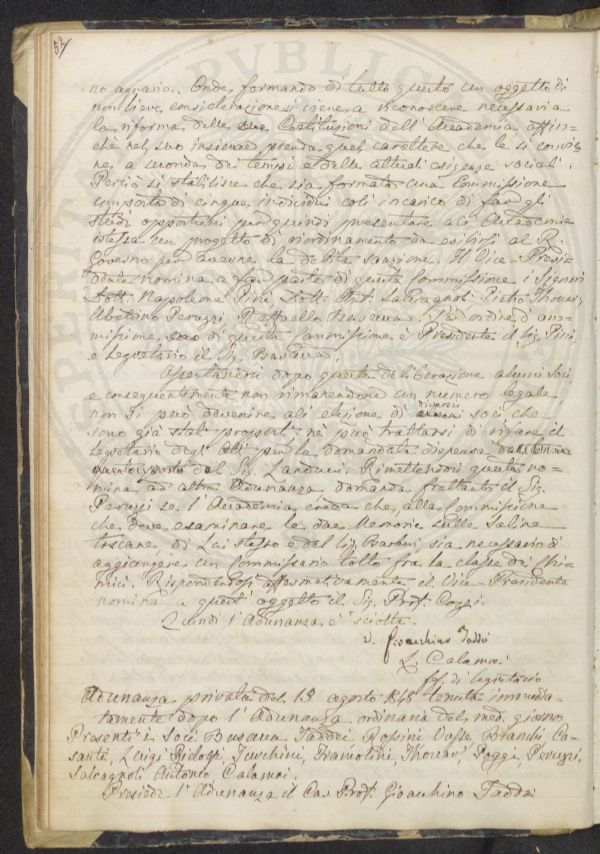 52
no agrario. Onde formando di tutto questo un oggetto di
non lieve considerazione si viene a riconoscere necessaria
la riforma delle Costituzioni dell'Accademia affin=
chè nel suo insieme prenda quel carattere che le si convie
ne, a seconda dei tempi e delle attuali esigenze sociali.
Perciò si stabilisce che sia formata una Commissione
composta di cinque individui coll'incarico di far gli
studi opportuni per quindi presentare all'Accademia
istessa un progetto di riordinamento da esibirsi al R.
Governo per averne la debita sanzione. Il Vice-Presi=
dente nomina a far parte di questa Commissione i Signori
Dott. Napoleone Pini, Dott. Ant. Salvagnoli, Pietro Thouar,
Abelardo Peruzzi, Raffaello Per ordine d'am=
missione, sono di questa Commissione Presidente il Sig. Pini
e Segretario il Sig.
Assentandosi dopo questa deliberazione alcuni Soci,
e conseguentemente non rimanendone un numero legale
non si può devenire all'elezione di diversi soci che
sono già stati proposti; nè può trattarsi di rifare il
Segretario degli Atti per la domandata dispensa
del Sig. Landucci. Rimettendosi questa no=
mina ad altra Adunanza, domanda frattanto il Sig.
Peruzzi se l'Accademia creda che alla Commissione
che deve esaminare le due Memorie sulle Saline
toscane, di Lui stesso e del Sig. Barberi sia necessario di
aggiungere un Commissario tolto fra la classe dei Chi=
mici. Rispondendosi affermativamente il Vice-Presidente
nomina a quest'oggetto il Sig. Prof. Cozzi.
Quindi l'Adunanza è sciolta.
V. Gioacchino Taddei
L. Calamai
ff. di Segretario
Adunanza privata del 13 agosto 1848 tenuta immedia
tamente dopo l'Adunanza ordinaria del med. giorno
Presenti i Soci Buscucca Taddei Rossini Vasse Bianchi Ca=
santi, Luigi Ridolfi, Turchini, Thouar, Poggi, Peruzzi,
Salvagnoli Antonio Calamai.
Presiede l'Adunanza il Cav. Prof. Gioacchino Taddei